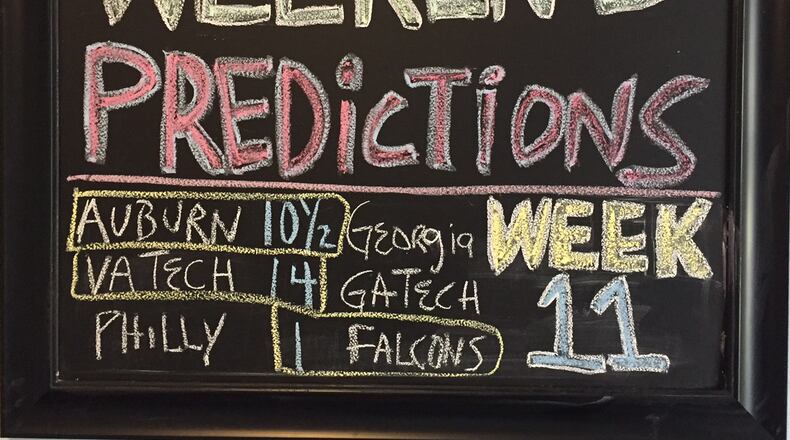 WEEKEND
PREDICTIONS
AUBURN 10½ GEORGIA
VA TECH 14 GATECH
PHILLY 1 FALCONS
WEEK
11